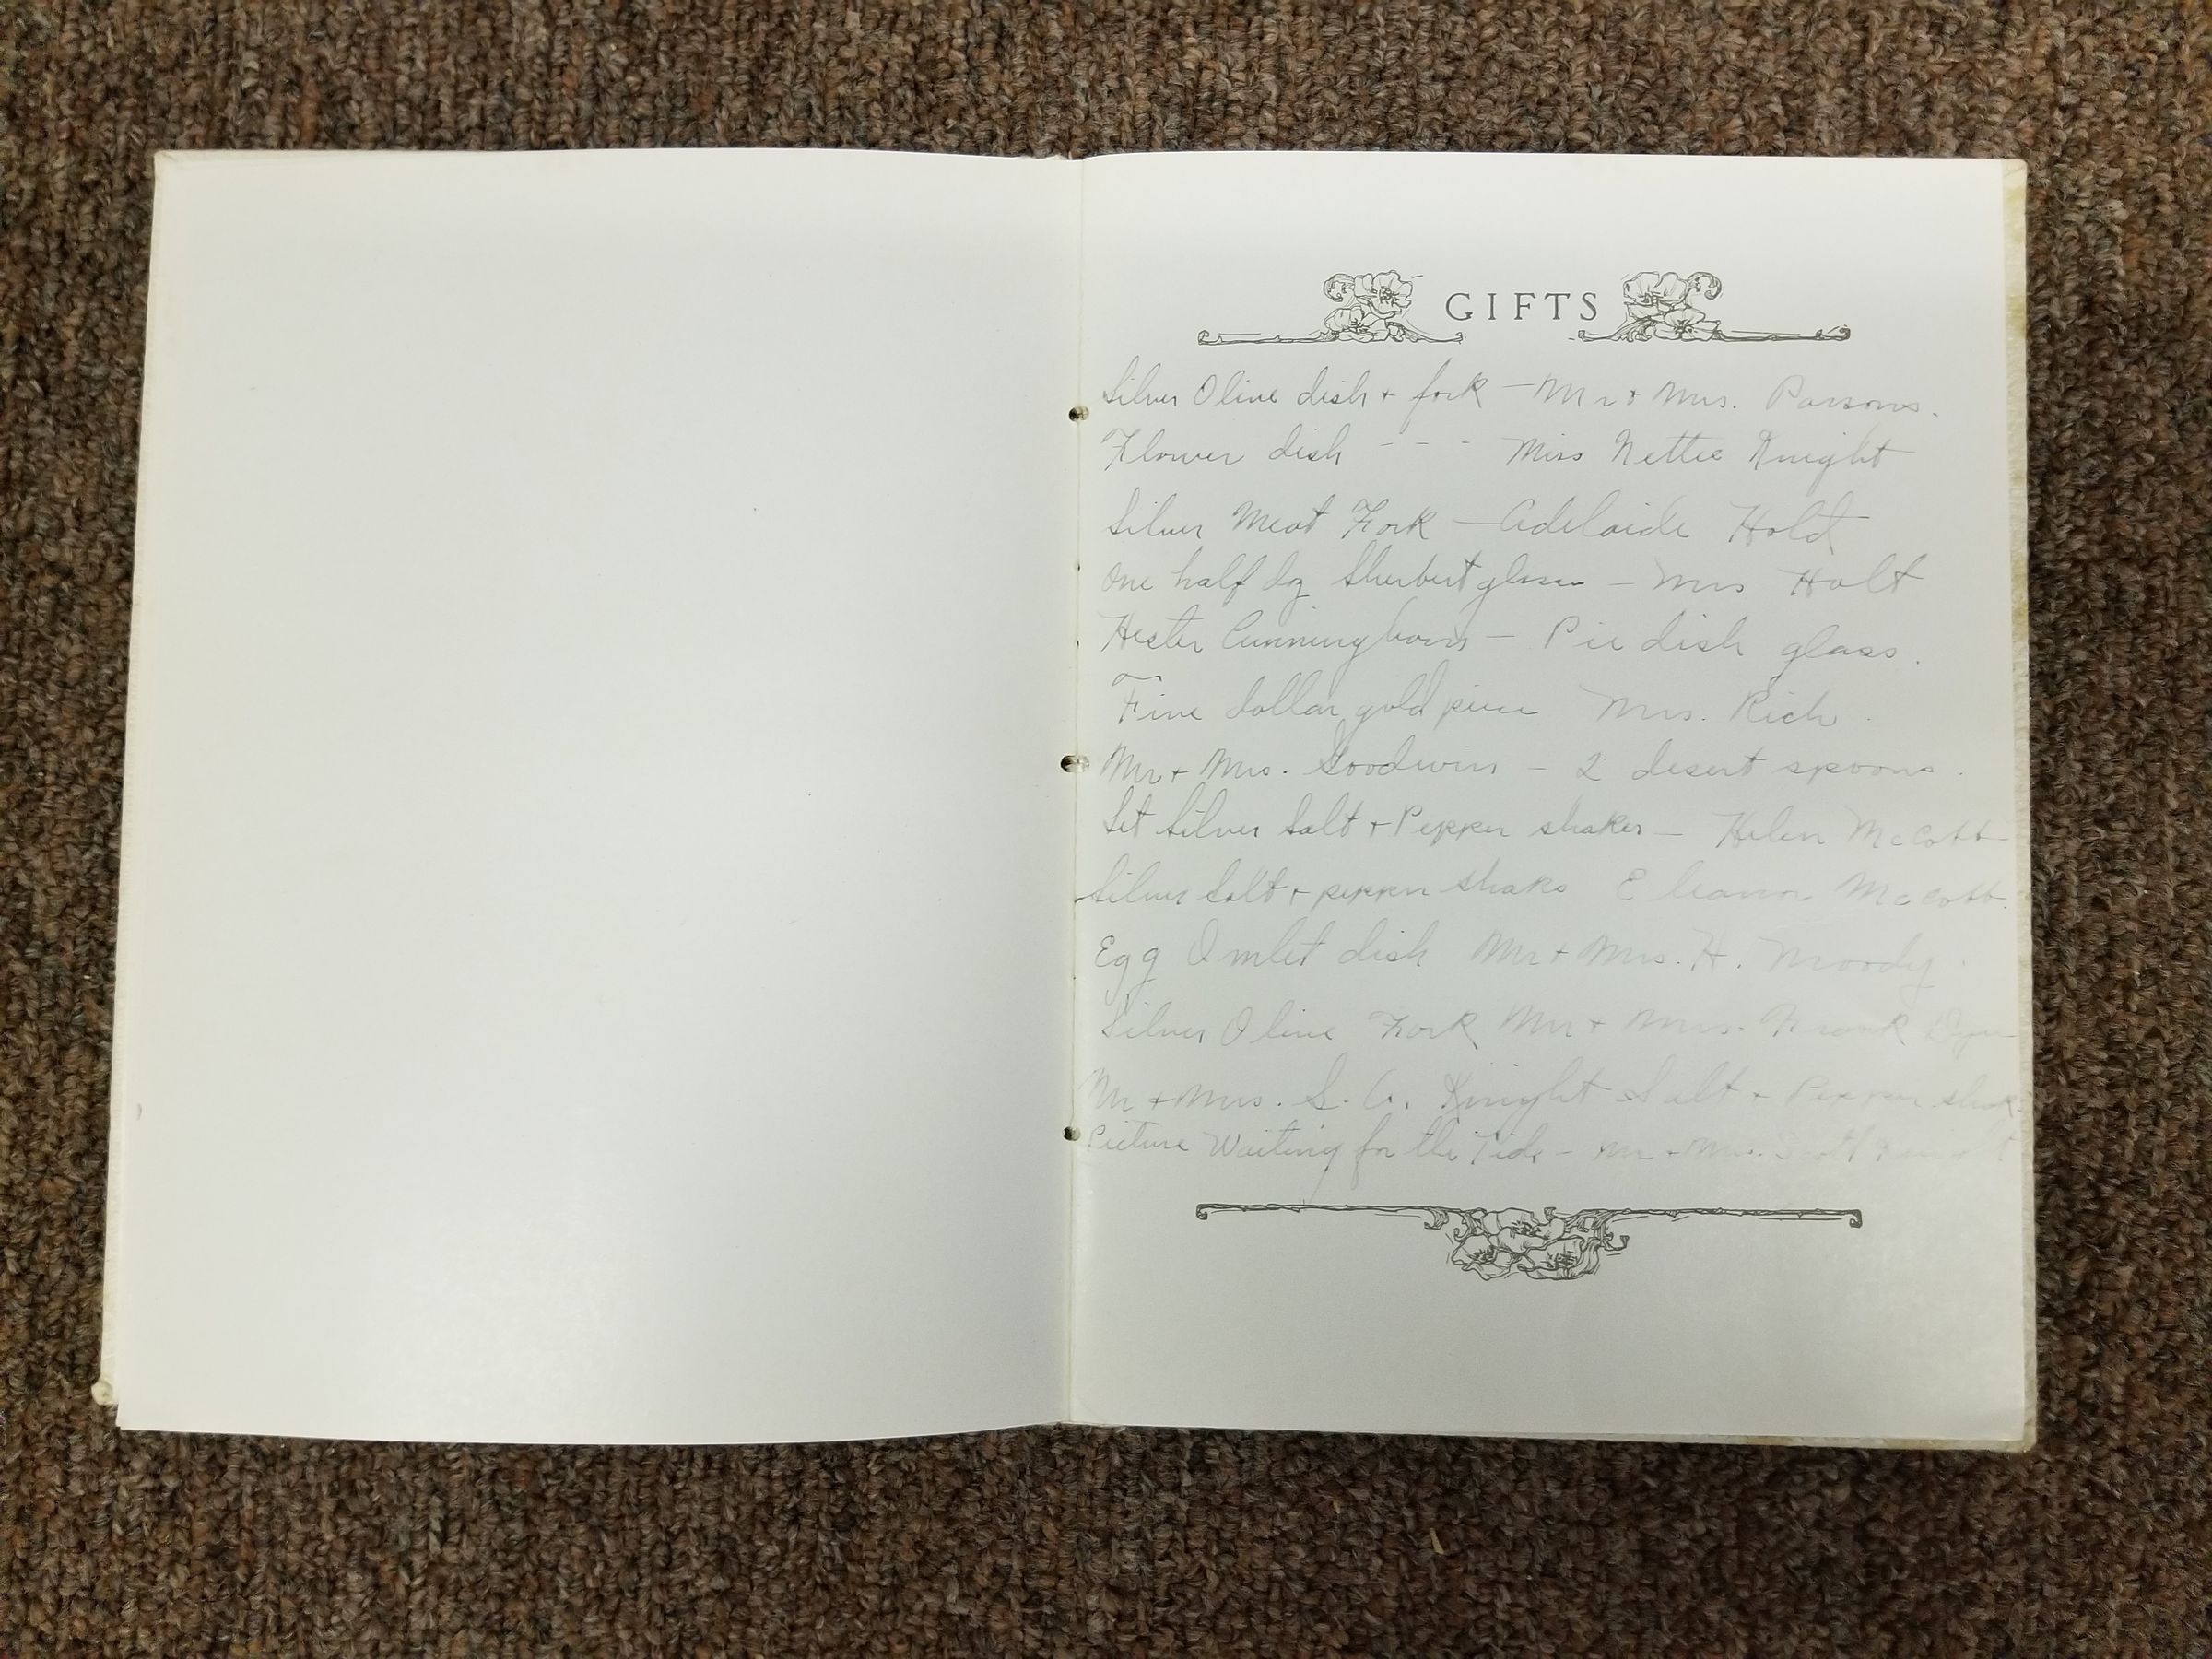 GIFTS
Silver Olive dish + fork - Mr + Mrs. Parsons.
Flower dish - - - Miss Nettie Knight
Silver Meat Fork - Adelaide Hold
One half doz Sherbert glasses - Mrs Holt
Hester Cunningham - Pie dish glass.
Five dollar gold piece Mrs. Rich.
Mr + Mrs. Goodwin - 2 desert spoons.
Set Silver Salt + Pepper shakes - Helen McCobb
Silver Salt + pepper shaks Eleanor McCobb.
Egg Omlet dish Mr + Mrs. H. Moody.
Silver Olive Fork Mr + Mrs. Frank
Mr + Mrs. S. A. Knight Salt + Pepper shak
Picture Waiting for the Tide - Mr + Mrs. Scott Knight